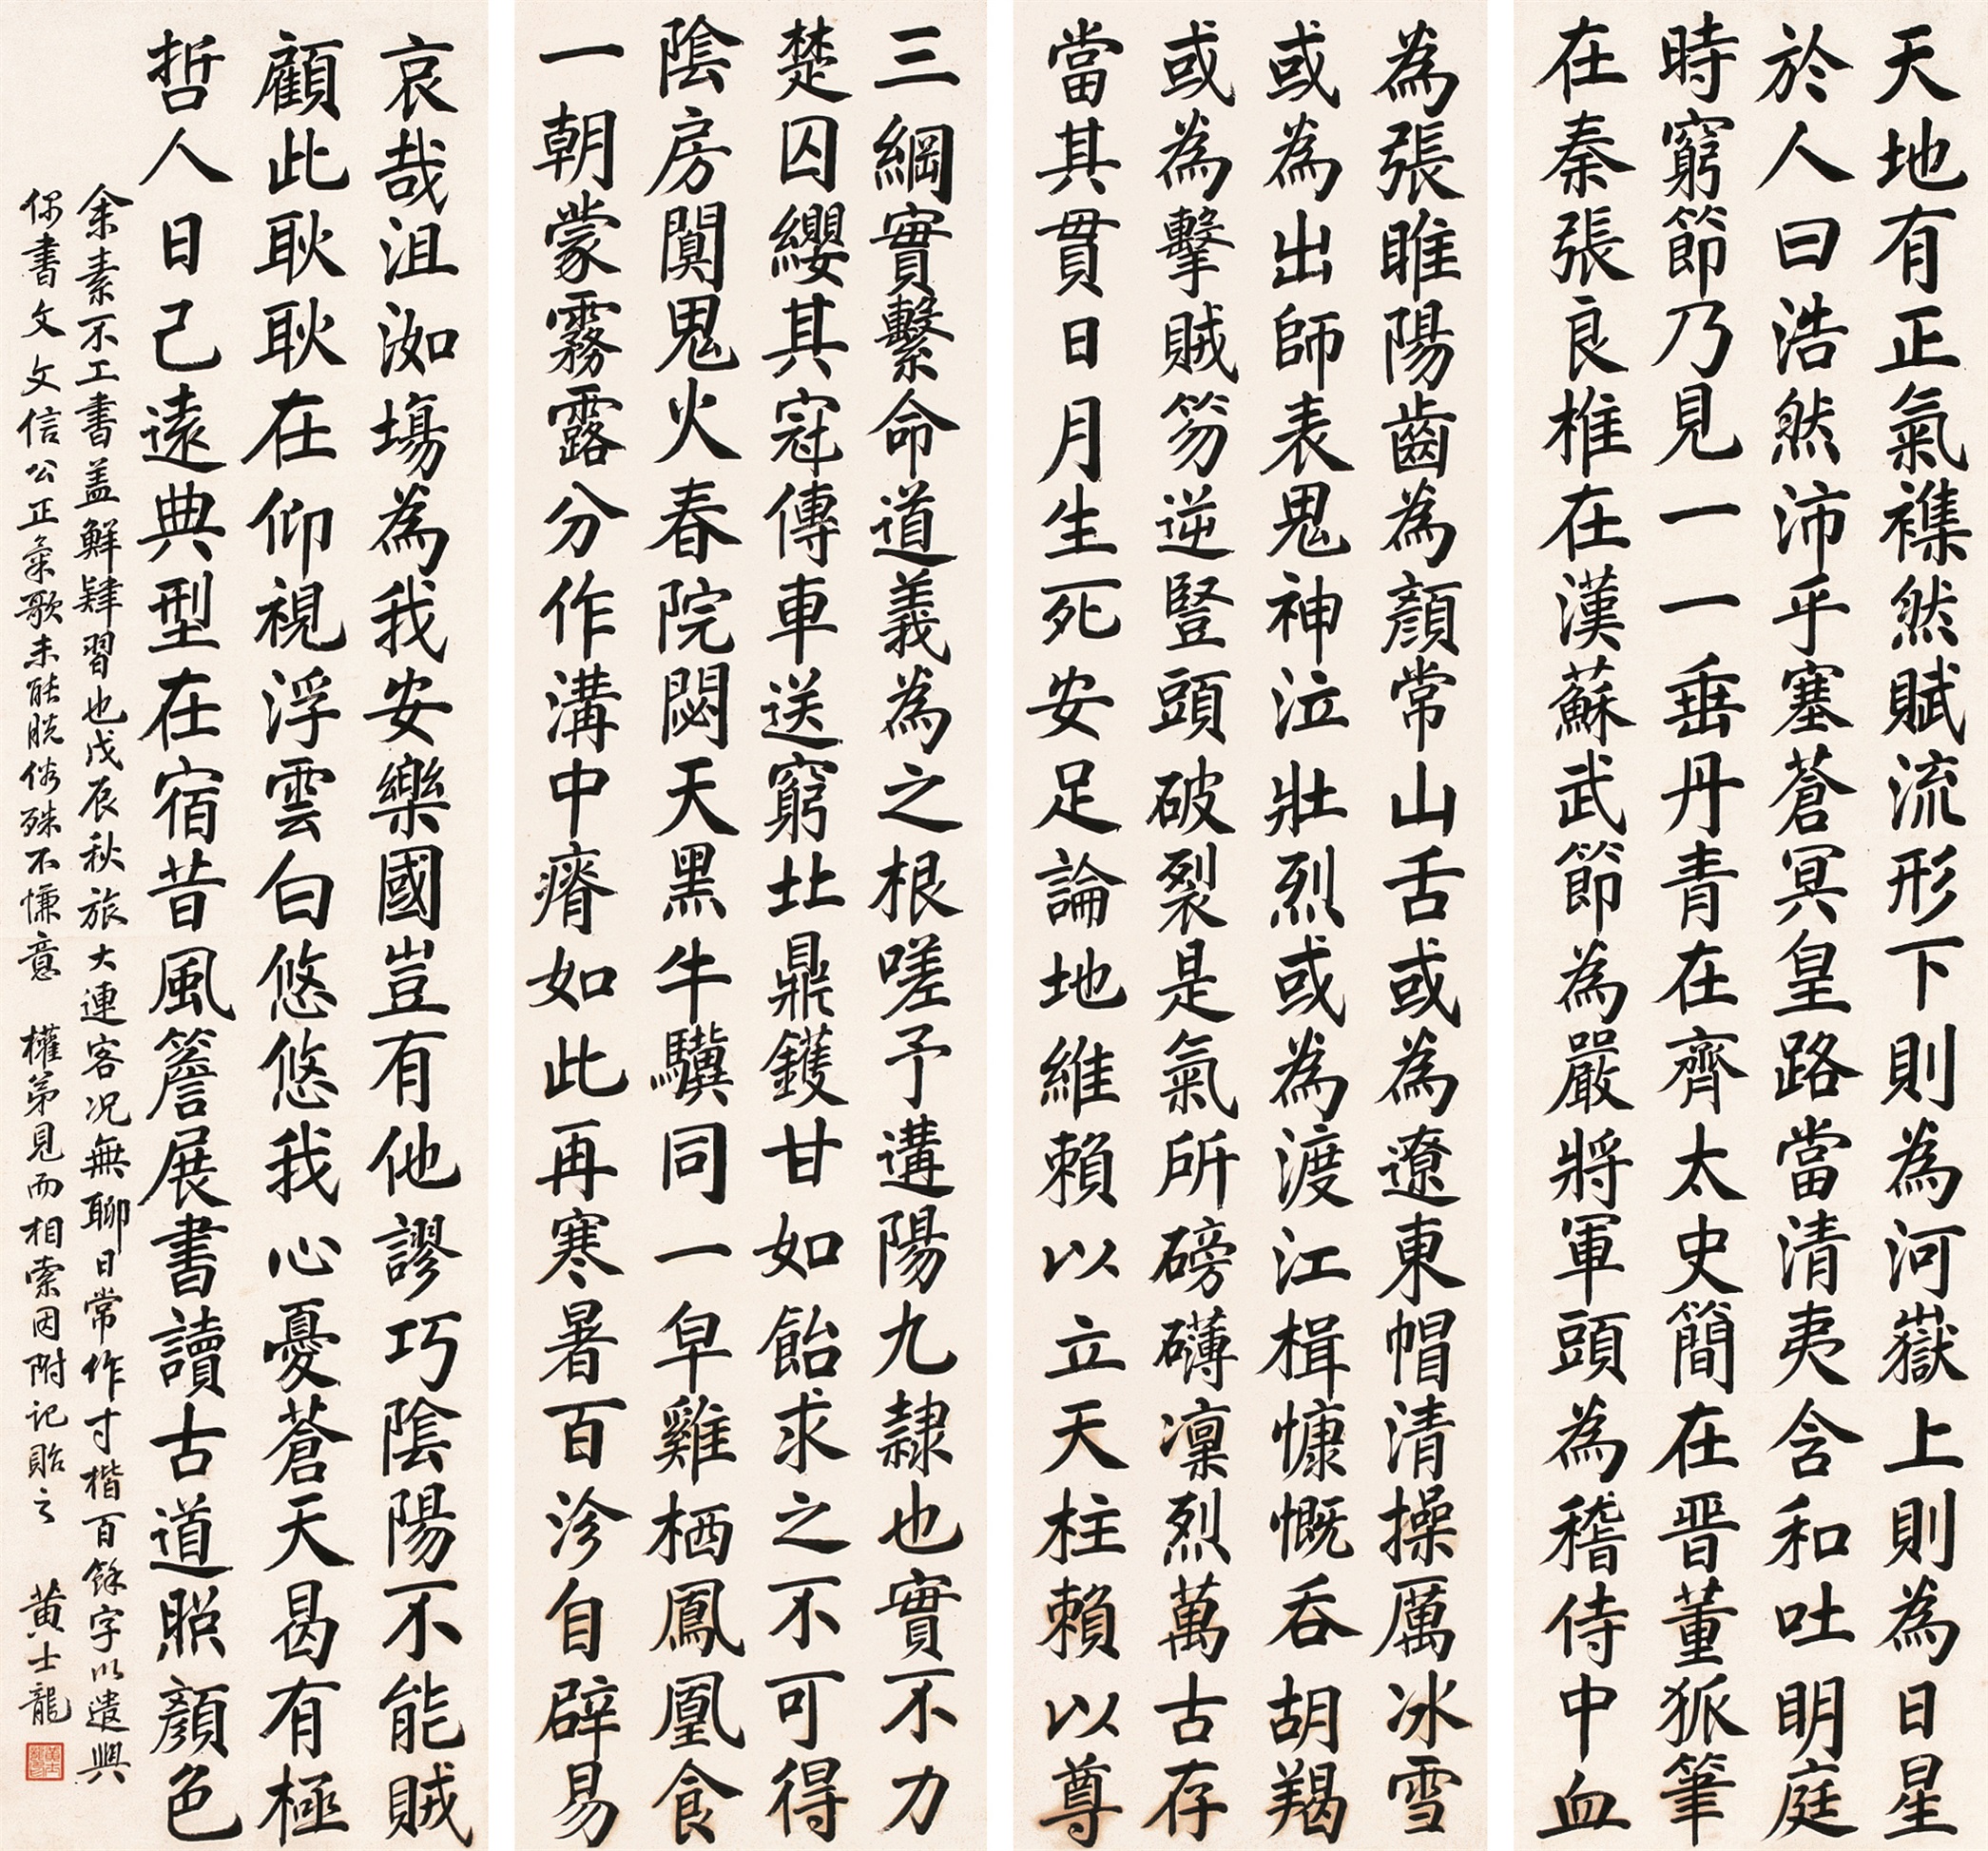 天地有正氣襍然賦流形下則為河嶽上則為日星
於人曰浩然沛乎塞蒼冥皇路當清夷含和吐明庭
時窮節乃見一一垂丹青在齊太史簡在晋董狐筆
在秦張良椎在漢蘇武節為嚴將軍頭為嵇侍中血
為張睢陽齒為顏常山舌或為遼東帽清操厲冰雪
或為出師表鬼神泣壯烈或為渡江楫慷慨吞胡羯
或為擊賊笏逆豎頭破裂是氣所磅礴凜烈萬古存
當其貫日月生死安足論地維賴以立天柱賴以尊
三綱實繫命道義為之根嗟予遘陽九隷也實不力
楚囚纓其冠傳車送窮北鼎鑊甘如飴求之不可得
陰房闃鬼火春院閟天黑牛驥同一皁雞栖鳳凰食
一朝蒙霧露分作溝中瘠如此再寒暑百沴自辟易
哀哉沮洳塲為我安樂國豈有他謬巧陰陽不能賊
顧此耿耿在仰視浮雲白悠悠我心憂蒼天曷有極
哲人日已遠典型在宿昔風簷展書讀古道照顏色
余素不工書盖鮮肄習也戊辰秋旅大連客况無聊日常作寸楷百餘字以遣興
偶書文文信公正氣歌未能脫俗殊不慊意 權弟見而相索因附记貽之 黃士龍